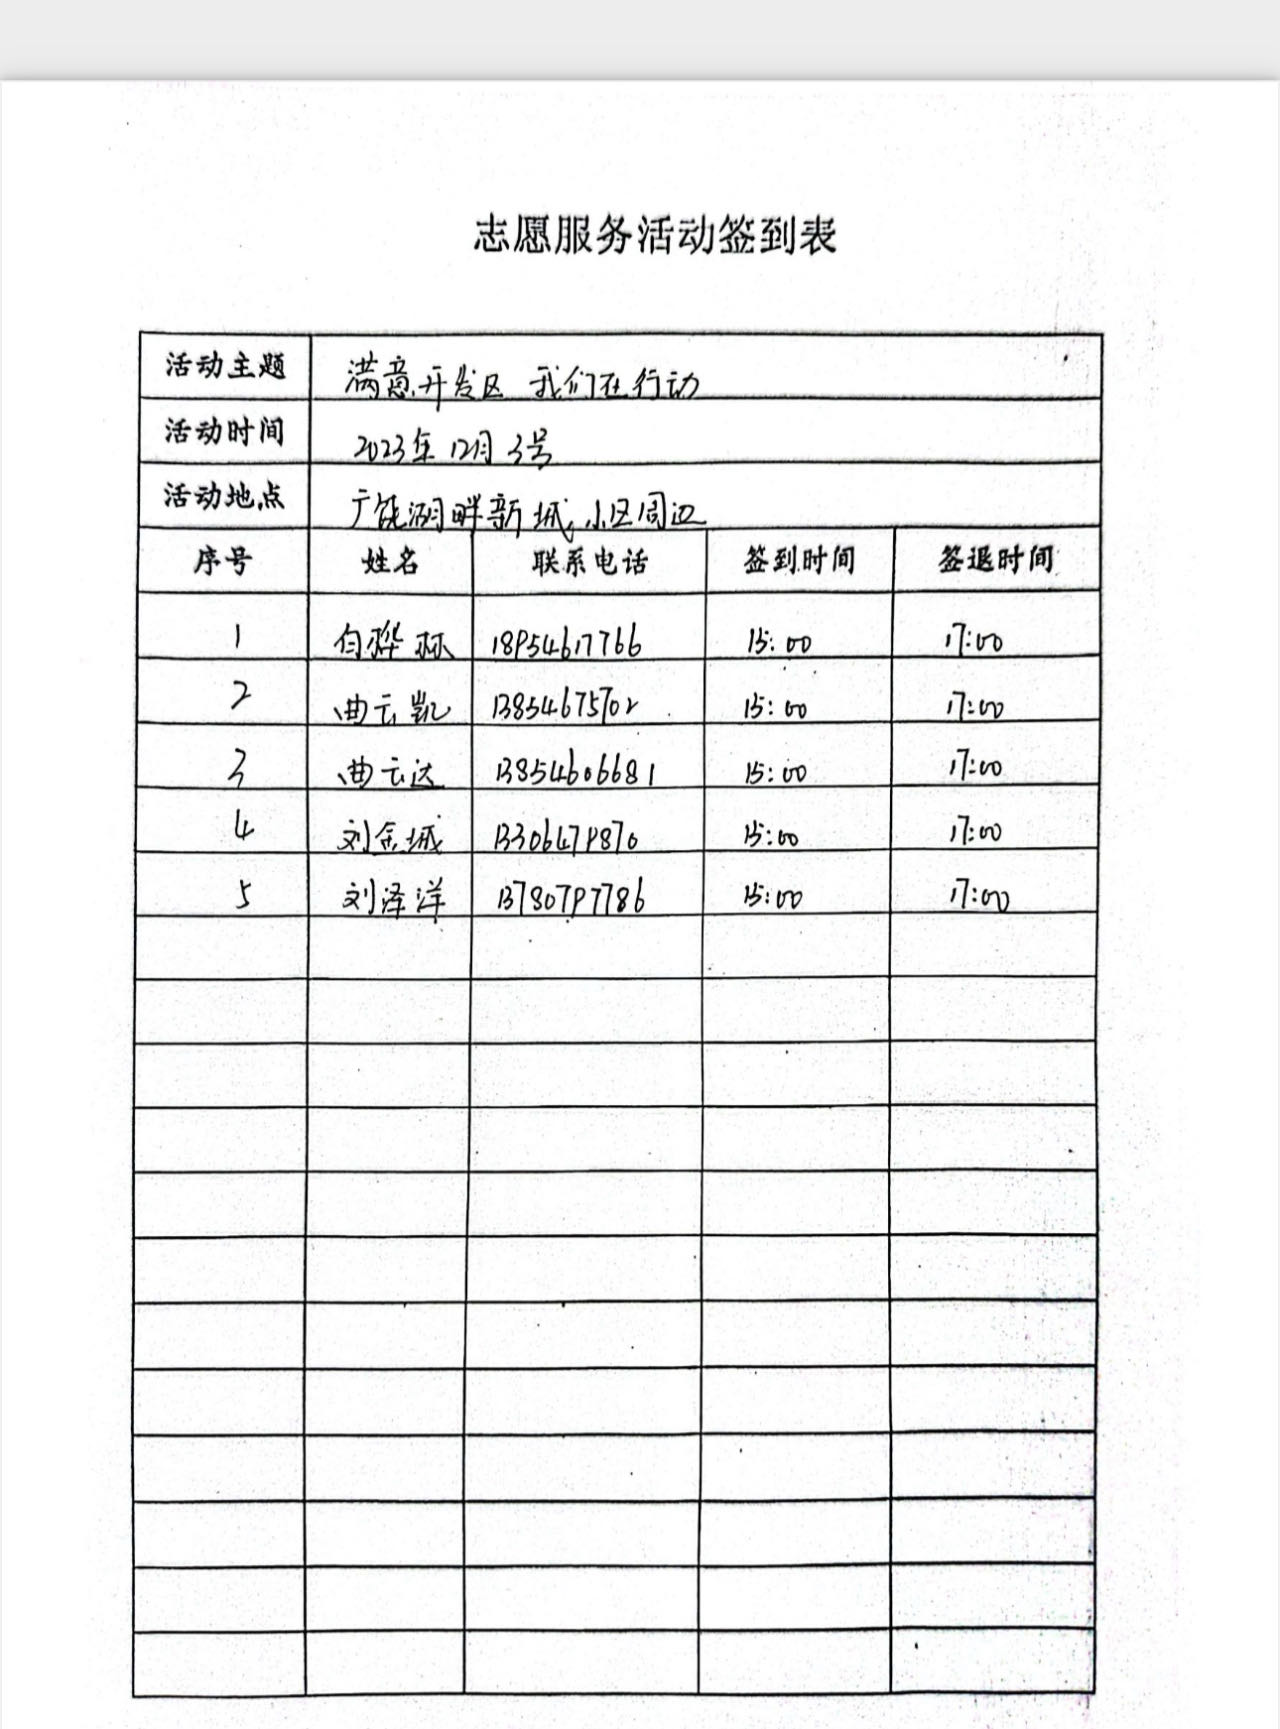 志愿服务活动签到表
活动主题 满意开发区 我们在行动
活动时间 2023年12月3号
活动地点 广饶湖畔新城小区周边
序号 姓名 联系电话 签到时间 签退时间
1 18954617766 15:00 17:00
2 曲云凯 13854675702 15:00 17:00
3 曲云达 13854606681 15:00 17:00
4 刘金城 13306479870 15:00 17:00
5 刘泽洋 13780797786 15:00 17:00